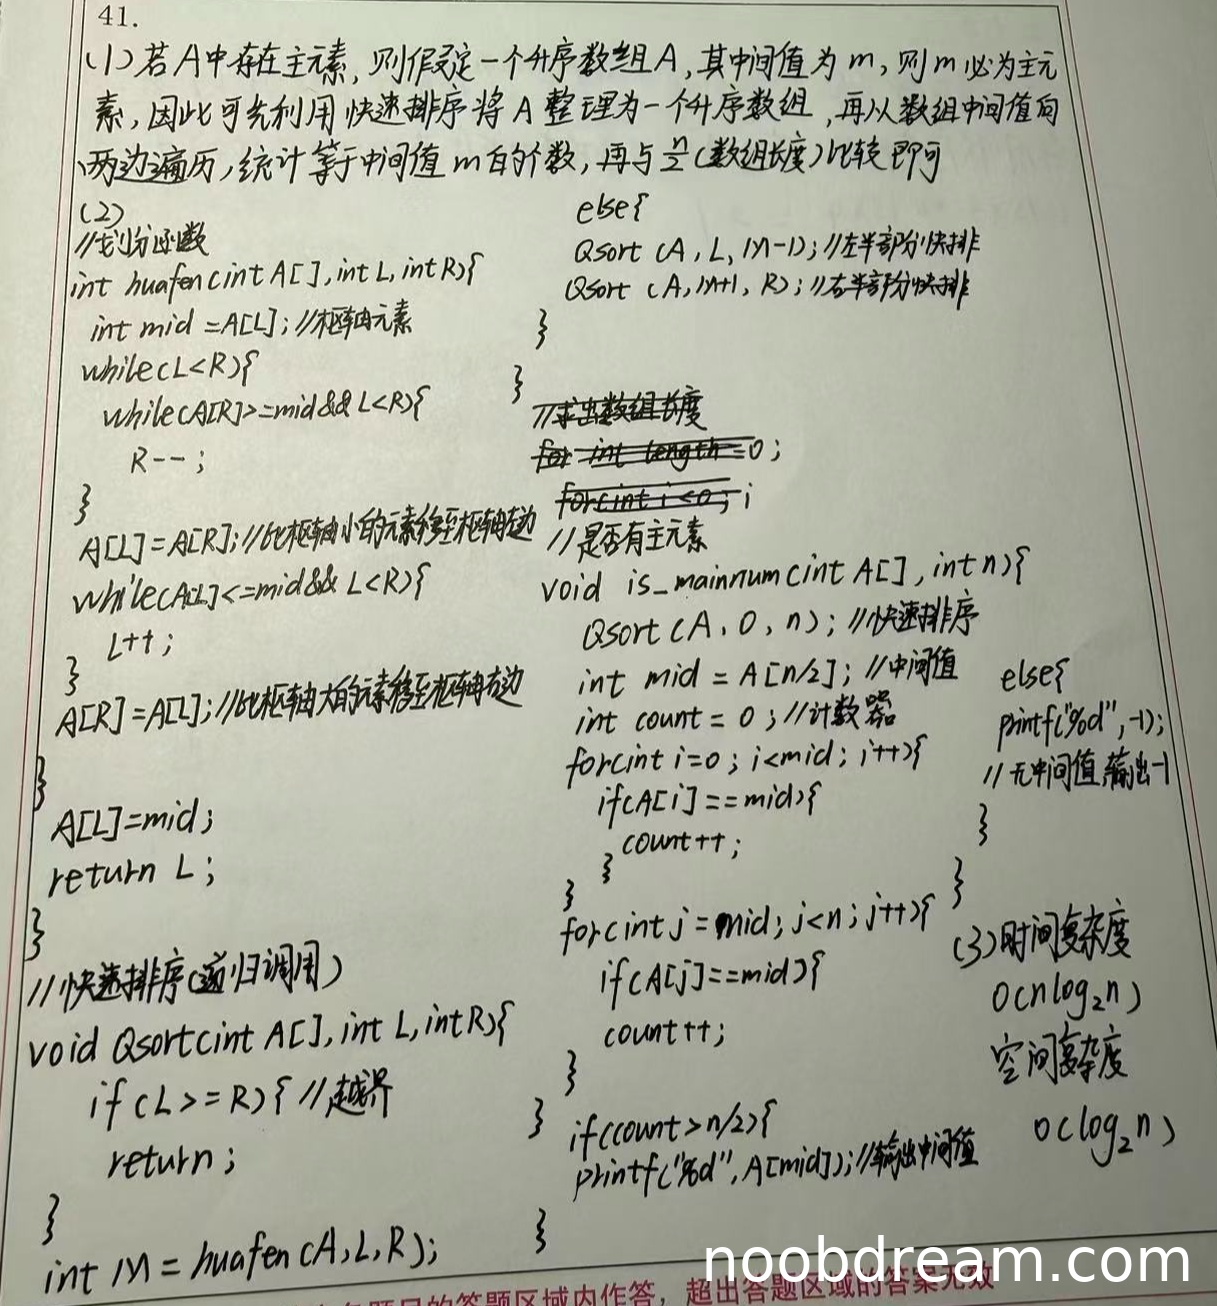 41.
(1)若A中存在主元素,则假定一个升序数组A,其中间值为m,则m必为主元
素,因此可先利用快速排序将A整理为一个升序数组,再从数组中间值向
两边遍历,统计等于中间值m的个数,再与n/2(数组长度)比较即可
(2)
//划分函数
int huafen(int A[],int L,int R){
int mid=A[L];//枢轴元素
while(L<R){
while(A[R]>=mid&&L<R){
R--;
}
A[L]=A[R];//比枢轴小的元素移至枢轴左边
while(A[L]<=mid&&L<R){
L++;
}
A[R]=A[L];//比枢轴大的元素移至枢轴右边
}
A[L]=mid;
return L;
}
//快速排序(递归调用)
void Qsort(int A[],int L,int R){
if(L>=R){//越界
return;
}
int M=huafen(A,L,R);
else{
Qsort(A,L,M-1);//左半部分快排
Qsort(A,M+1,R);//右半部分快排
}
}
//求出数组长度
for int length=0;
for(int i<0;i
//是否有主元素
void is_mainnum(int A[],int n){
Qsort(A,0,n);//快速排序
int mid=A[n/2];//中间值
int count=0;//计数器
for(int i=0;i<mid;i++){
if(A[i]==mid){
count++;
}
}
for(int j=mid;j<n;j++){
if(A[j]==mid){
count++;
}
}
if(count>n/2){
printf("%d",A[mid]);//输出中间值
}
else{
printf("%d",-1);
//无中间值,输出-1
}
}
(3)时间复杂度
O(nlog₂n)
空间复杂度
O(log₂n)
题目的答题区域内作答,超出答题区域的答案无效
noobdream.com